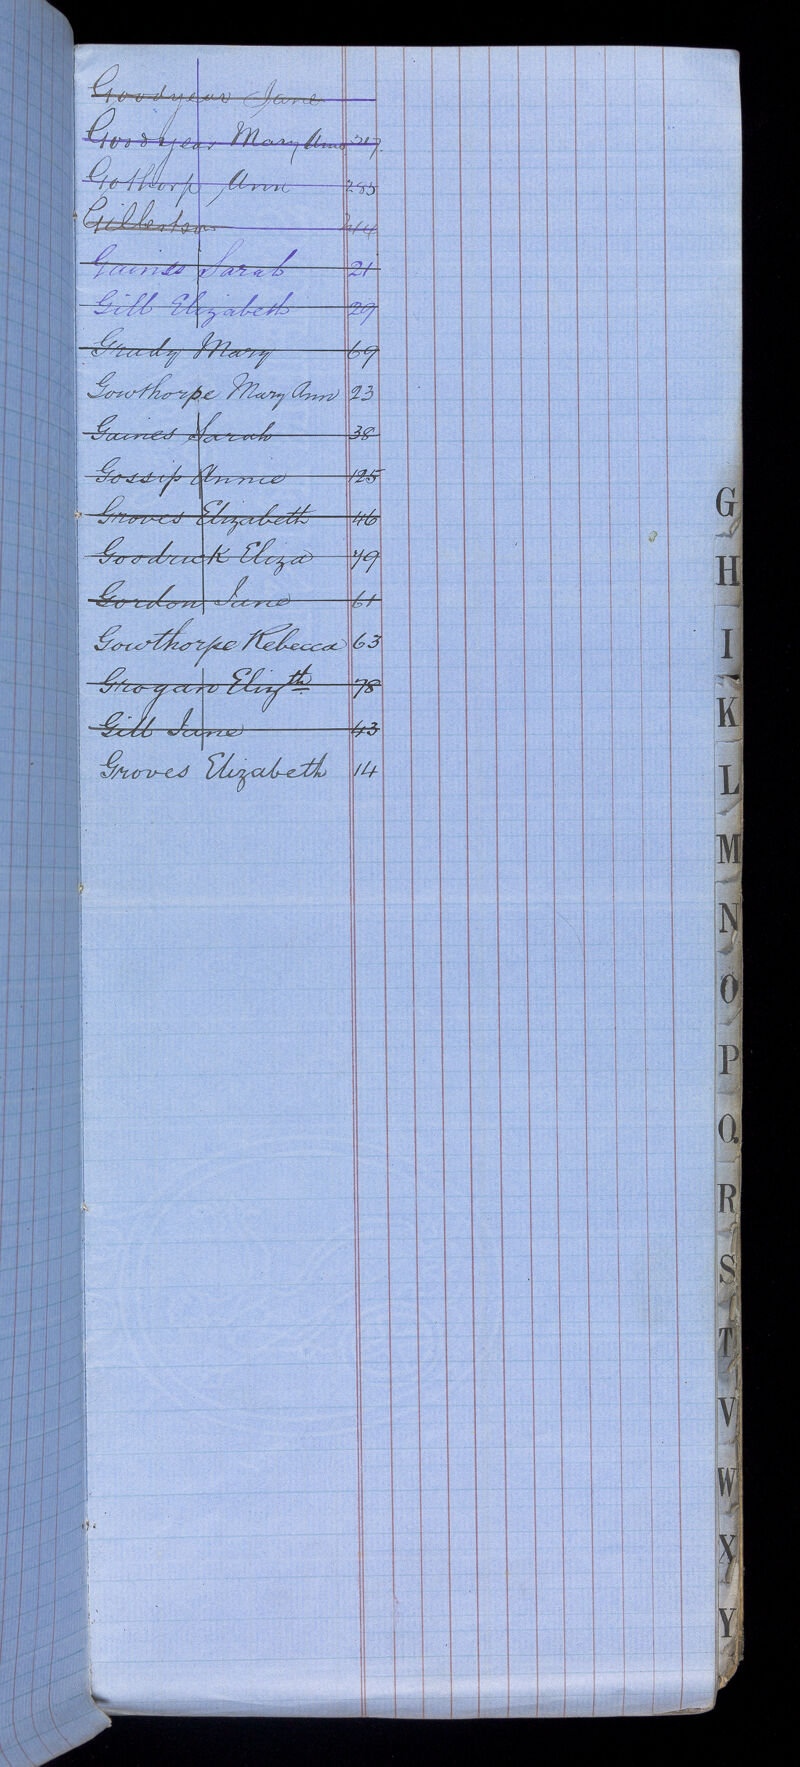 Goodyear Jane
Goodyear Mary Ann 217
Gothorp Ann 285
Gilbertson 214
Gaines Sarah 21
Gill Elizabeth 29
Grady Mary 69
Gowthorpe Mary Ann 23
Gaines Sarah 38
Gossip Annie 125
Groves Elizabeth 46
Goodrick Eliza 49
Gordon Jane 61
Gowthorpe Rebecca 63
Grogan Elizth 78
Gill Jane 43
Groves Elizabeth 14
G
H
I
K
L
M
N
O
P
Q.
R
S
T
V
W
X
Y